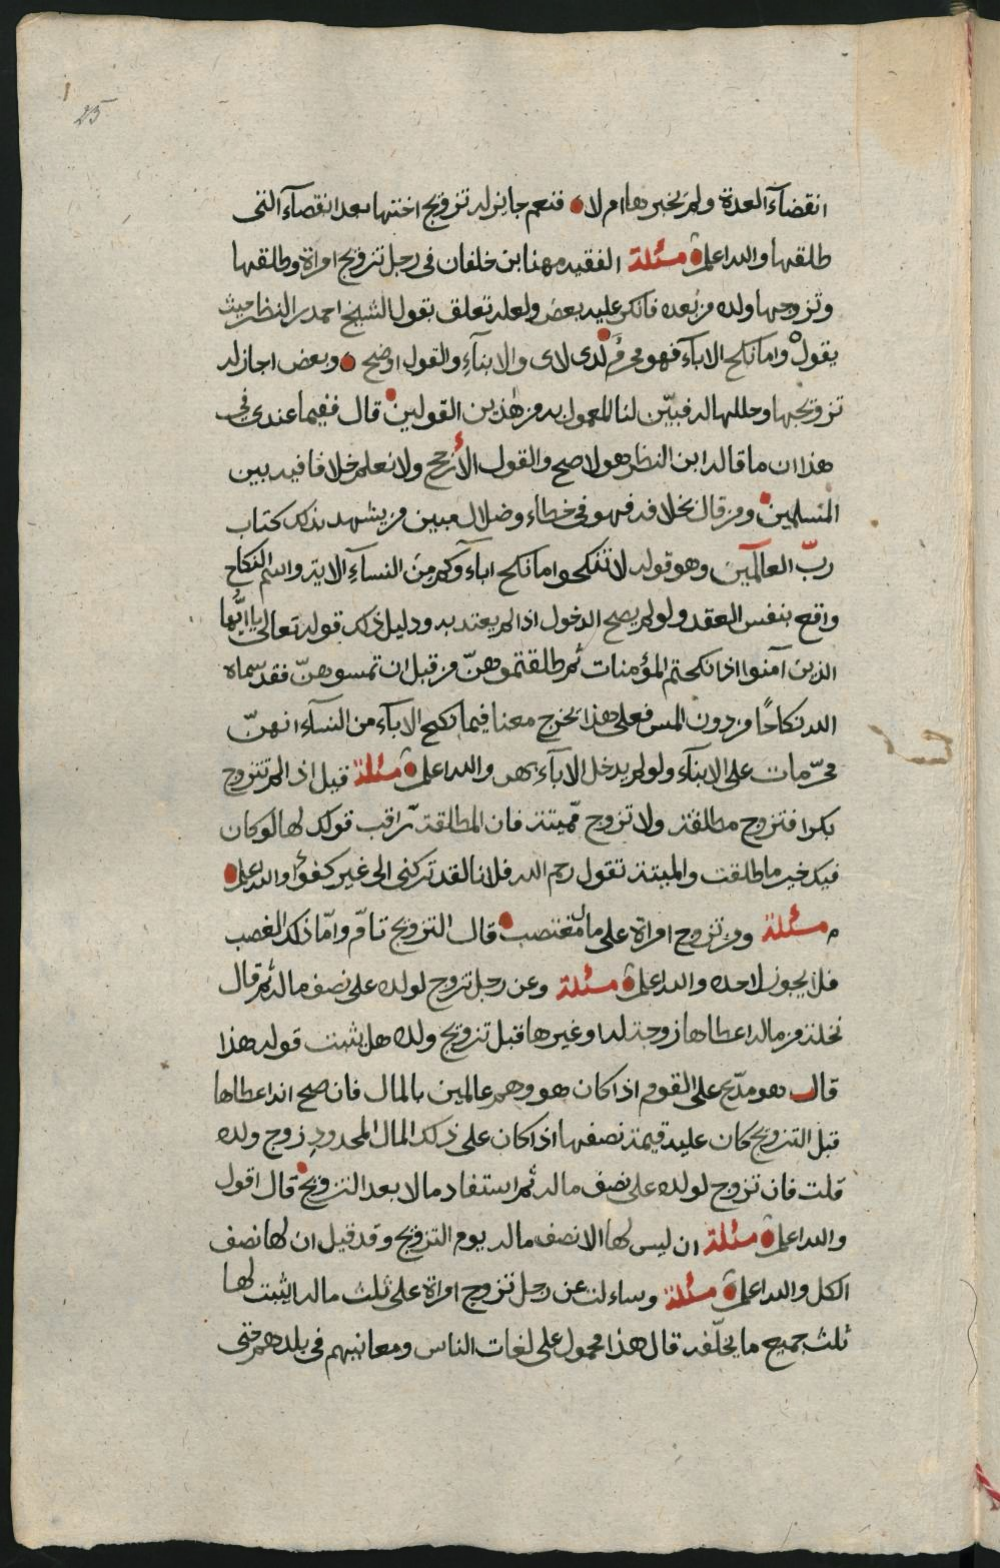 25
انقضآء العدة ولم يخبرها ام لا فنعم جايز له تزويج اختها بعد انقصآء التى
طلقها والله اعلم مسئلة الفقيه مهنا ابن خلفان فى رجل تزويج امراة وطلقها
وتزوجها ولده من بعده فانكر عليه بعض ولعله تعلق بقول الشيخ احمد بن النظر حيث
يقول وما نكح الابآء فهو محرم لدى لاى والابنآء والقول اوضح وبعض اجاز له
تزويجها وحللها له فبيّن لنا المعمول به من هذين القولين قال ففيما عندى فى
هذا ان ما قاله ابن النظر هو لاصح والقول الأرجح ولا نعلم خلافا فيه بين
المسلمين ومن قال بخلافه فهو فى خطاء وضلال مبين من يشهد بذلك كتاب
ربّ العالمين وهو قوله لا تنكحوا ما نكح اباؤكم من النسآء الاية واسم النكاح
واقع بنفس العقد ولو لم يصح الدخول اذا لم يعتد به ودليل ذلك قوله تعالى يا ايّها
الذين آمنوا اذا نكحتم المؤمنات ثم طلقتموهنّ من قبل ان تمسوهنّ فقد سّماه
الله نكاحًا من دون المس فعلى هذا يخرج معنا فيما نكح الابآء من النسآء انهنّ
محرّمات على الابنآء ولو لم يدخل الابآء بهن والله اعلم مسئلة قيل اذا لم تتزوج
بكرا فتزوج مطلقة ولا تزوج مميتة فان المطلقة تراقب قولك لها لو كان
فيك خير ما طلقت والميتة تقول رحم الله فلانا لقد تركنى الى غير كفؤ والله اعلم
مسئلة ومن تزوج امراة على مال مغتصب قال التزويج تامّ وامّا ذلك الغصب
فلا يجوز لاحد والله اعلم مسئلة وعن رجل تزوج لولده على نصف ماله ثم قال
نخلة من ماله اعطاها زوجة له او غيرها قبل تزويج ولده هل يثبت قوله هذا
قال هو مدّع على القوم اذا كان هو وهم عالمين بالمال فان صح انه اعطاها
قبل التزويج كان عليه قيمة نصفها اذا كان على ذلك المال المحدود زوج ولده
قلت فان تزوج لولده على نصف ماله ثم استفاد مالا بعد التزويج قال اقول
والله اعلم مسئلة ان ليس لها الا نصف ماله يوم التزويج وقد قيل ان لها نصف
الكل والله اعلم مسئلة وساءلت عن رجل تزوج امراة على ثلث ماله ايثبت لها
ثلث جميع ما يخلّفه قال هذا محمول على لغات الناس ومعانيهم فى بلدهم حتى